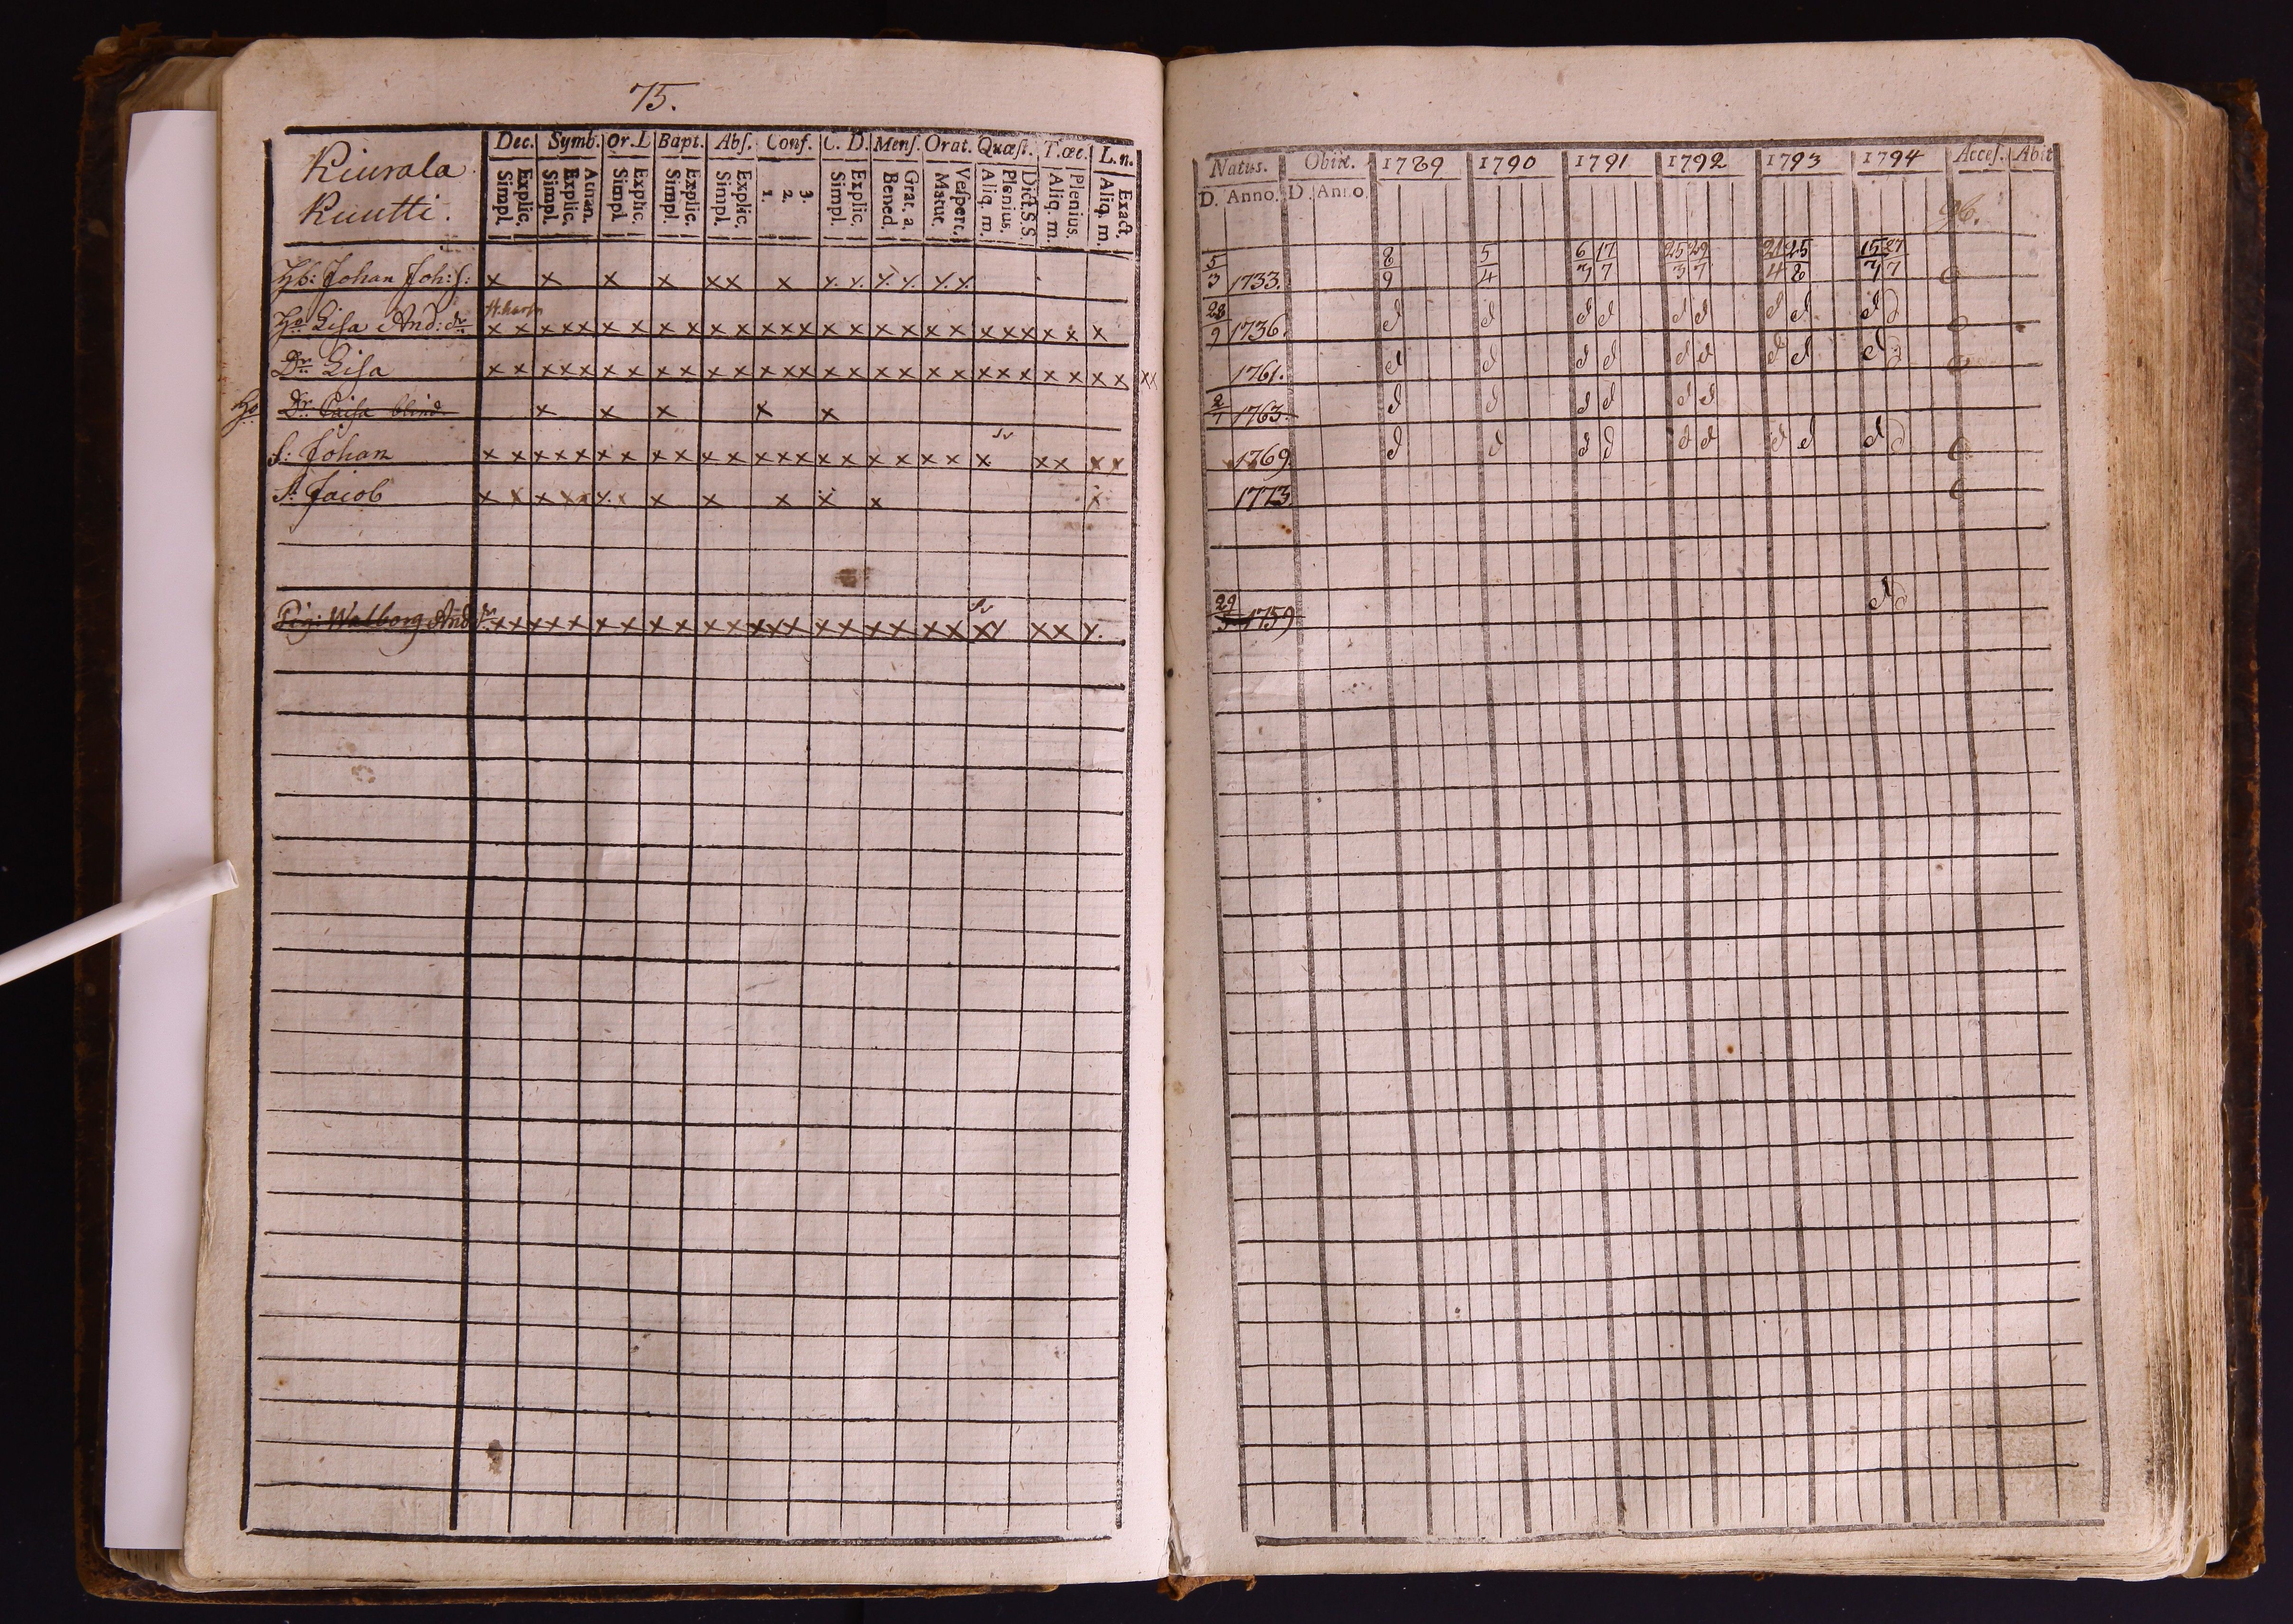 75.
Kiurala
Kuutti.
Dec. Symb. Or. L Bapt. Abſ. Conf. C. D. Menſ. Orat. Quæſt. T.œc. L.n.
Explic. Simpl. Actuan. Explic. Simpl. Explic. Simpl. Explic. Simpl. Explic. Simpl. 3. 2. 1. Explic. Simpl. Grat. a. Bened. Veſpert. Matut. Dict. S.S Plenius. Aliq. m. Plenius. Aliq. m. Exact. Aliq. m.
Hb: Johan Joh: S: x x x x x x x y. y. y. y. y. y.
Ho Lisa And: dr x x x x x x x x x x x x x x x x x x x x x x x x x x x
Dr Lisa x x x x x x x x x x x x x x x x x x x x x x x x x x x x x x
Ho Dr Caisa blind x x x x x
S: Johan x x x x x x x x x x x x x x x x x x x x x x x x
S: Jacob x x x x x y. x x x x x x x
Pig: Walborg And dr x x x x x x x x x x x x x x x x x x x x x y x x y.
Natus. Obiit. 1789 1790 1791 1792 1793 1794 Acceſ. Abit
D. Anno. D. Anno
96.
5/3 1733. 8/9 5/4 6/7 17/7 25/3 29/7 21/4 25/8 15/7 27/7
28/9 1736. d d d d d d d d d d
1761. d d d d d d d d d d
2/1 1763. d d d d d d
1769. d d d d d d d d d d
1773.
29/3 1759 d d